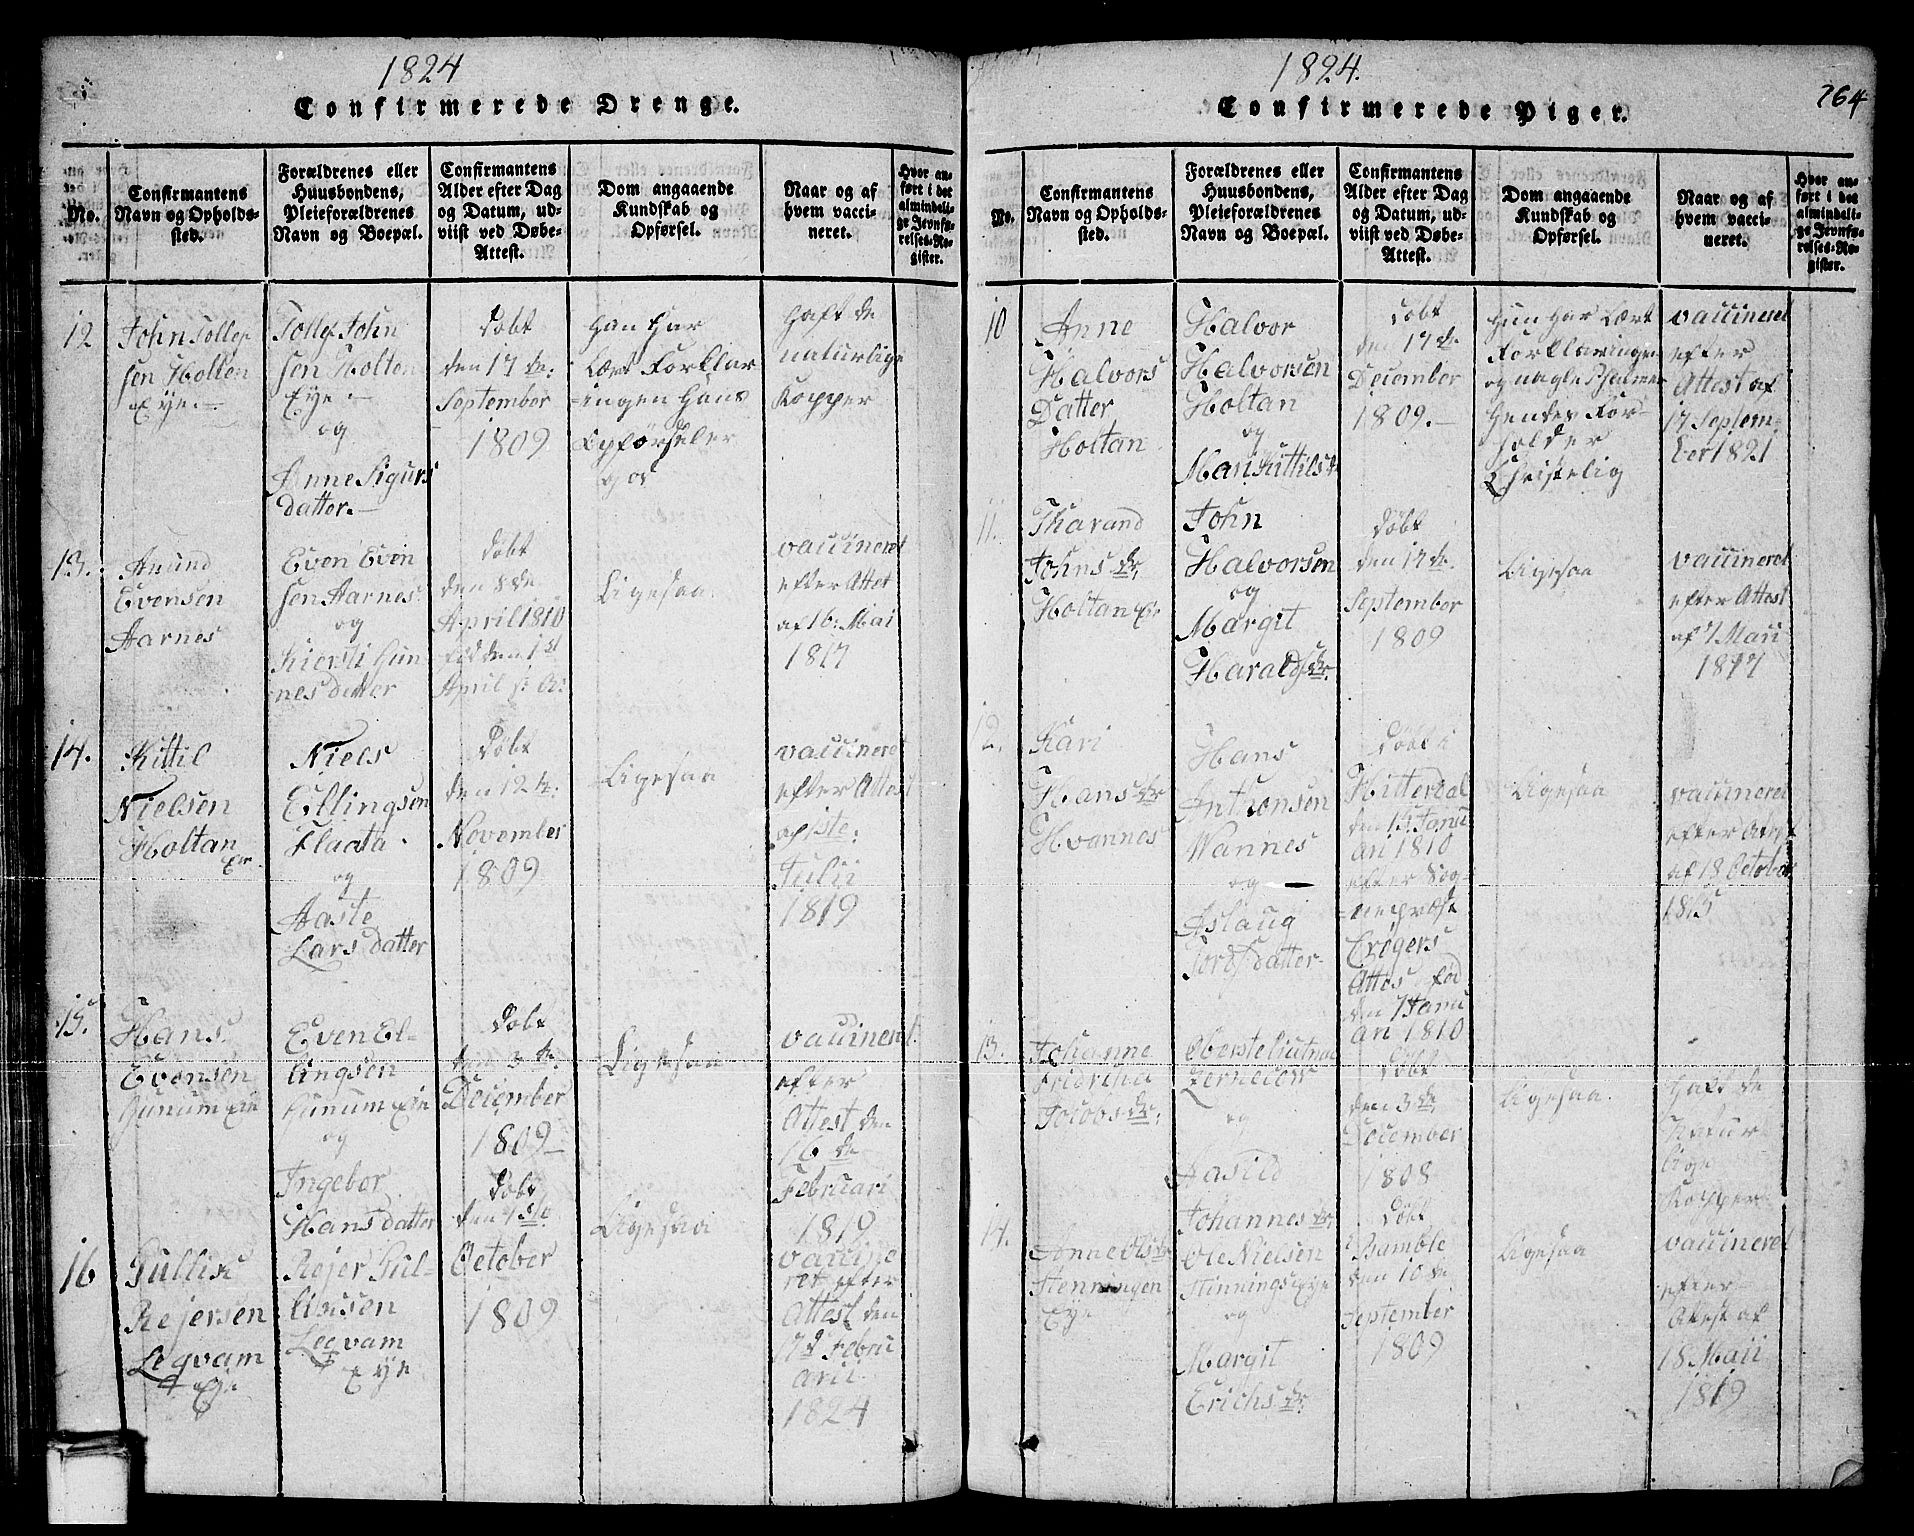 1824
Confirmerede Drenge.
No.
Confirmantens
Navn og Opholds-
sted.
Forældrenes eller
Huusbondens,
Pleieforældrenes
Navn og Boepæl.
Confirmantens
Alder efter Dag
og Datum, ud-
viist ved Døbe-
Attest.
Dom angaaende
Kundskab og
Opførsel.
Naar og af
hvem vacci-
neret.
Hvor an-
ført i det
almindeli-
ge Jevnfø-
relses-Re-
gister.
12
John Tollef
sen Holten
Eye.
Tollef John
sen Holten
Eye
og
Anne Sigurs
datter.
Døbt
den 17 de.
September
1809
Han har
Lært Forklar
ingen Hans
Opførsel er
god
Haft de
naturlige
Kopper
13.
Amund
Evensen
Aarnes
Even Even
sen Aarnes
og
Kiersti Gun
nesdatter
døbt
den 8 de
April 1810
fød den 1 st
April s: A:
Ligesaa
vaccineret
efter Attest
af 16. Mai
1817
14.
Kittil
Nielsen
Holtan
Eie
Niels
Ellingsen
Flaata
og
Aaste
Lars datter
Døbt
den 12 te.
November
1809
Ligesaa
vaccineret
efter Attest
af 1ste.
Julii
1819
15.
Hans
Evensen
Gunum Eie
Even El-
lingsen
Gunum Eie
og
Ingebor
Hansdatter
Døbt
den 3 de.
December
1809
Ligesaa
vaccineret
efter
Attest den
16 de
Februari
1819
16
Gullik
Rejersen
Leqvam
Eje
Rejer Gul-
licksen
Leqvam
Eye
Døbt
den 1 ste
October
1809
Ligesaa
vaccine
ret efter
Attest den
7d Febru
arii
1824
1824.
264
Confirmerede Piger.
No.
Confirmantens
Navn og Opholds-
sted.
Forældrenes eller
Huusbondens,
Pleieforældrenes
Navn og Boepæl.
Confirmantens
Alder efter Dag
og Datum, ud-
viist ved Døbe-
Attest.
Dom angaaende
Kundskab og
Opførsel.
Naar og af
hvem vacci-
neret.
Hvor an-
ført i det
almindeli-
ge Jevnfø-
relses-Re-
gister.
10
Anne
Halvors
Datter
Holtan
Halvor
Halvorsen
Holtan
og
Mari Kittils dr
Døbt
den 17 de.
December
1809.
Hun har Lært
Forklaringen
og nogle Psalmer
Hendes For-
holder
Christelig
vaccineret
efter
Attest af
17 Septem-
ber 1821
11.
Tharand
Johns dr,
Holtan Eie
John
Halvorsen
og
Margit
Haralds dr.
Døbt
den 17 de.
September
1809
Ligesaa
vaccineret
efter Attest
af 7 Maii
1817
12.
Kari
Hans dr
Hvannes
Hans
Anthonsen
Wannes
og
Aslaug
Tordsdatter
Døbt i
Hitterdal
den 14 Janu
ari 1810
efter Sog-
nepræst
Crøgers
Attes fød
den 7 Janu
ari 1810
Ligesaa
vaccineret
efter Attest
af 18 October
1815
13.
Johanne
Fridricha
Jacobs dr.
Oberstelieutnat
Zernecow
og
Aasild
Johannes dr.
Døbt
den 3 de.
December
1808
Ligesaa.
Haft de
Natur
lige
Kopper
14.
Anne Ols dr
Henningen
Eye
Ole Nielsen
Hinnings Eye
og
Margit
Erichs dr.
Døbt
Bamble
den 10 de
September
1809
Ligesaa
vaccineret
efter
Attest af
18 Maii
1819